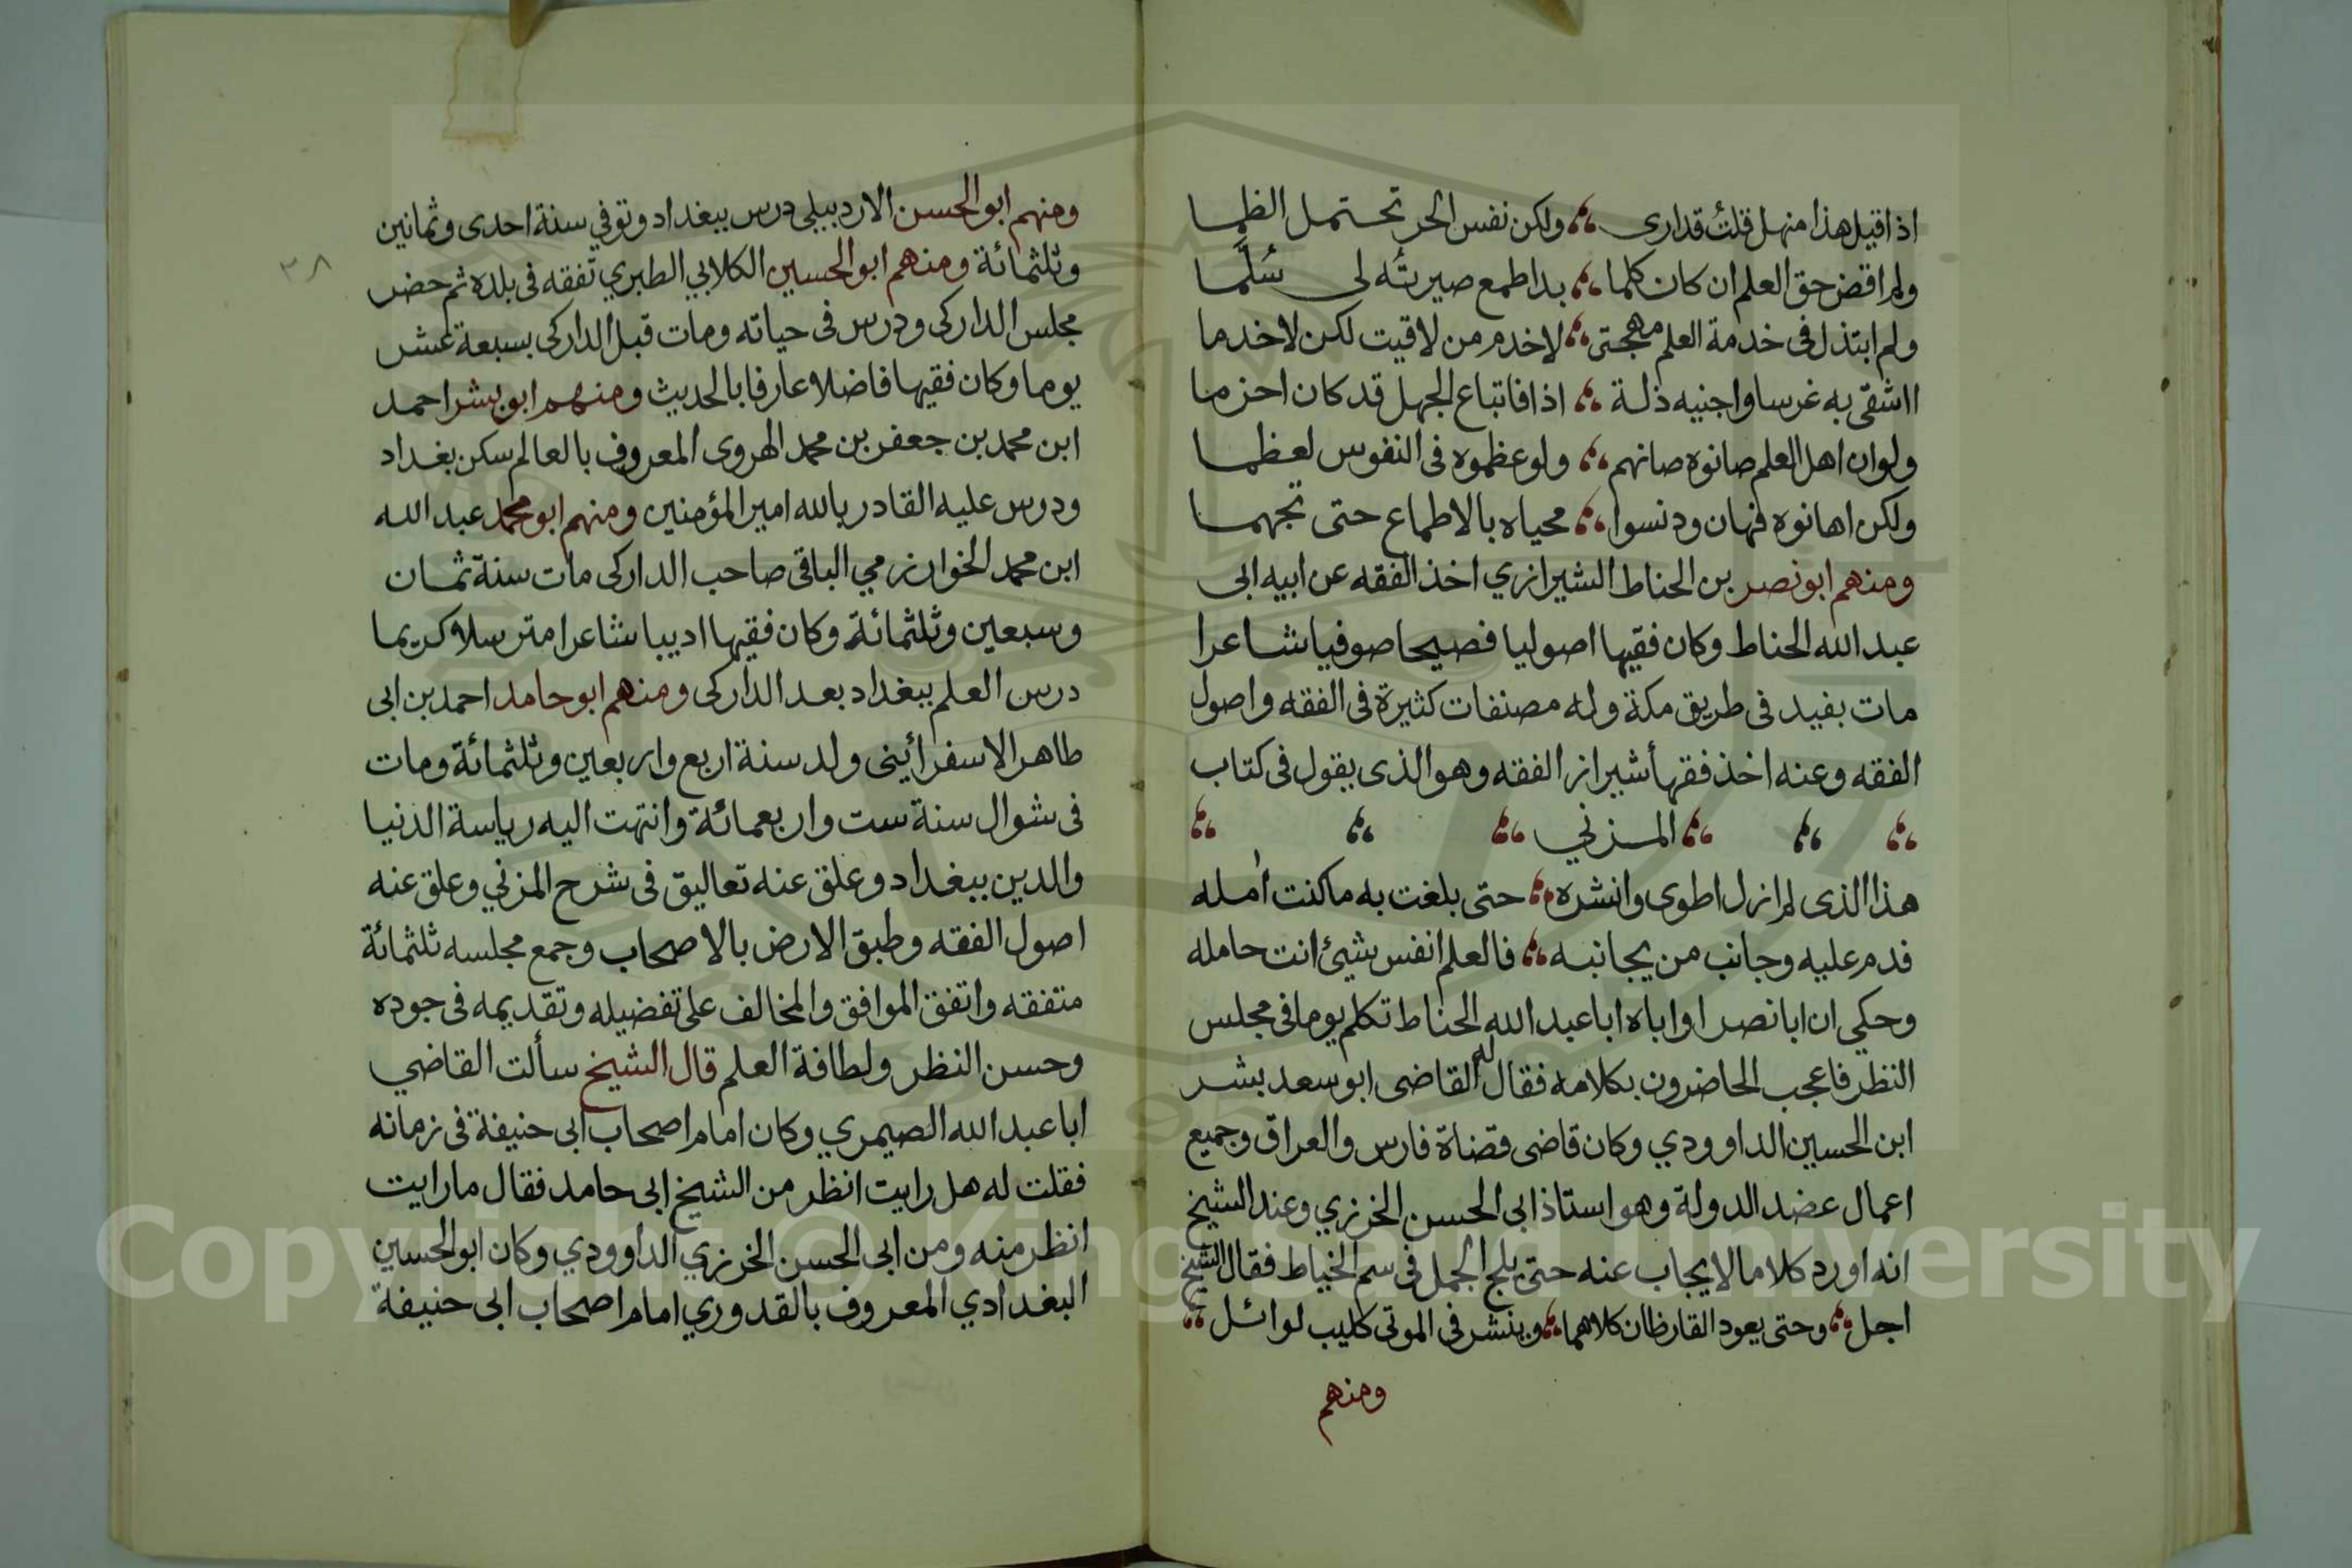 اذا قيل هذا منهل قلت قد ارى ولكن نفس الحر تحتمل الظما
ولم اقض حق العلم ان كان كلما بدا طمع صيرته لى سُلَّما
ولم ابتذل فى خدمة العلم مهجتى لاخدم من لاقيت لكن لاخدما
ااشقى به غرسا واجنيه ذلة اذا فاتباع الجهل قد كان احزما
ولو ان اهل العلم صانوه صانهم ولو عظموه فى النفوس لعظما
ولكن اهانوه فهان ودنسوا محياه بالاطماع حتى تجهما
ومنهم ابو نصر بن الحناط الشيرازي اخذ الفقه عن ابيه ابى
عبد الله الحناط وكان فقيها اصوليا فصيحا صوفيا شاعرا
مات بفيد فى طريق مكة وله مصنفات كثيرة فى الفقه واصول
الفقه وعنه اخذ فقهأ شيراز الفقه وهو الذى يقول فى كتاب
المزني
هذا الذى لم ازل اطوى وانشره حتى بلغت به ما كنت اُمله
فدم عليه وجانب من يجانبه فالعلم انفس شيئ انت حامله
وحكي ان ابا نصر او اباه ابا عبد الله الحناط تكلم يوما فى مجلس
النظر فاعجب الحاضرون بكلامه فقال له القاضى ابو سعد بشر
ابن الحسين الداوودي وكان قاضى قضاة فارس والعراق وجميع
اعمال عضد الدولة وهو استاذ ابى الحسن الخرزي وعند الشيخ
انه اورد كلاما لا يجاب عنه حتى يلج الجمل فى سم الخياط فقال الشيخ
اجل وحتى يعود القارظان كلاهما وينشر فى الموتى كليب لوائل
ومنهم
ومنهم ابو الحسن الاردبيلى درس ببغداد وتوفي سنة احدى وثمانين
وثلثمائة ومنهم ابو الحسين الكلابي الطبري تفقه فى بلده ثم حضر
مجلس الداركى ودرس فى حياته ومات قبل الداركى بسبعة عشر
يوما وكان فقيها فاضلا عارفا بالحديث ومنهم ابو بشر احمد
ابن محمد بن جعفر بن محمد الهروى المعروف بالعالم سكن بغداد
ودرس عليه القادر بالله امير المؤمنين ومنهم ابو محمد عبد الله
ابن محمد الخوارزمي الباقى صاحب الداركى مات سنة ثمان
وسبعين وثلثمائة وكان فقيها اديبا شاعرا مترسلا كريما
درس العلم ببغداد بعد الداركى ومنهم ابو حامد احمد بن ابى
طاهر الاسفرائينى ولد سنة اربع واربعين وثلثمائة ومات
فى شوال سنة ست واربعمائة وانتهت اليه رياسة الدنيا
والدين ببغداد وعلق عنه تعاليق فى شرح المزني وعلق عنه
اصول الفقه وطبق الارض بالاصحاب وجمع مجلسه ثلثمائة
متفقه واتفق الموافق والمخالف على تفضيله وتقديمه فى جوده
وحسن النظر ولطافة العلم قال الشيخ سألت القاضي
ابا عبد الله الصيمري وكان امام اصحاب ابى حنيفة فى زمانه
فقلت له هل رايت انظر من الشيخ ابى حامد فقال ما رايت
انظر منه ومن ابى الحسن الخرزي الداوودي وكان ابو الحسين
البغدادي المعروف بالقدوري امام اصحاب ابى حنيفة
٣٨
Copyright © King Saud University